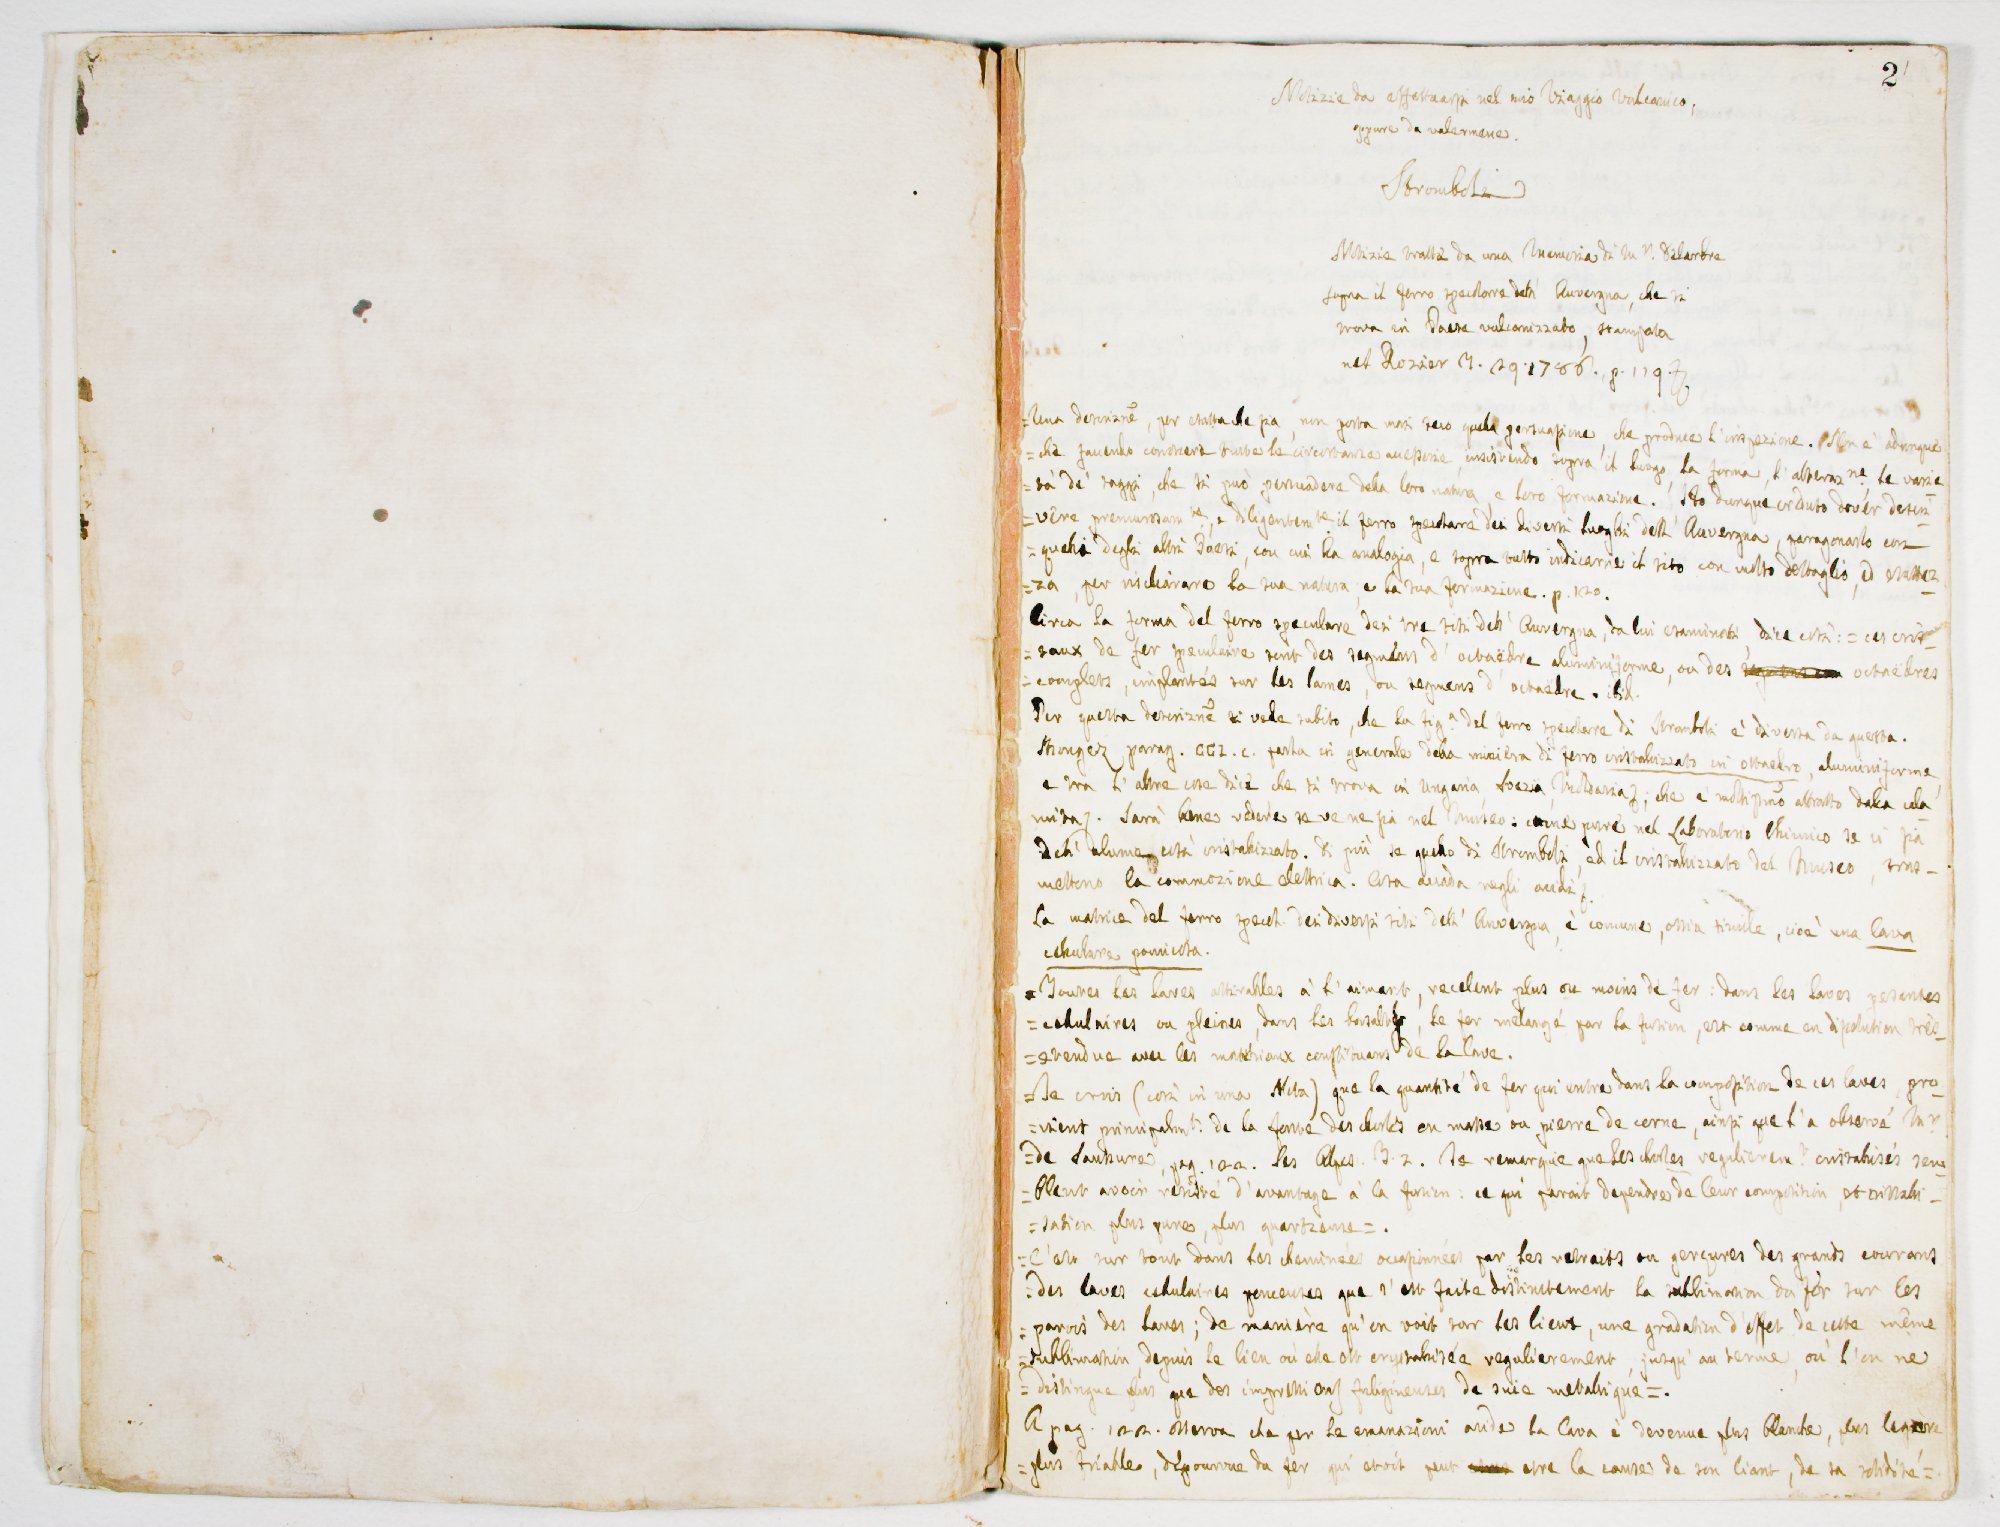 2
Notizie da effettuarsi nel mio Viaggio Vulcanico,
oppure da valermene.
Stromboli
Notizie tratte da una Memoria di Mr. Delarbre
sopra il ferro speculare dell' Auvergna, che si
trova in Paese vulcanizzato, stampata
nel Rozier T. 29. 1786. p. 119.
=Una descrizne, per esatta che sia, non porta mai seco quella persuasione, che produce l'inspezione. Non è adunque
=che facendo conoscere tutte le circostanze accessorie, insistendo sopra il luogo, la forma, l'alterazne, le varie
=tà de' saggi, che si può persuadere della loro natura, e loro formazione. Ho dunque creduto dover descri
=vere premurosamte, e diligentemte il ferro speculare dei diversi luoghi dell' Auvergna, paragonarlo con
=quelli degli altri Paesi, con cui ha analogia, e sopra tutto indicarne il sito con molto dettaglio, ed esattez
=za, per rischiarare la sua natura, e la sua formazione. p. 120.
Circa la forma del ferro speculare dei tre siti dell' Auvergna, da lui esaminati dice così: = ces cris
=taux de fer speculaire sont des segmens d' octaëdre aluminiforme, ou des octaëdres
=complets, implantés sur les lames, ou segmens d' octaëdre. ibid.
Per questa descrizne si vede subito, che la figa del ferro speculare di Stromboli è diversa da questa.
Mongez parag. CCI. c. parla in generale della miniera di ferro cristallizzato in ottaedro, aluminiforme,
e tra l' altre cose dice che si trova in Ungaria, Svezia, ; che è moltissmo attratto dalla cala
mita. Sarà bene vedere se ve ne sia nel Museo: come pure nel Laboratorio Chimico se ci sia
dell' alume così cristallizzato. Di più se quello di Stromboli, ed il cristallizzato del Museo, tras-
mettono la commozione elettrica. Cosa accada negli acidi.
La matrice del ferro specul. dei diversi siti dell' Auvergna, è comune, ossia simile, cioè una lava
cellulare pomicosa.
=Toutes les laves attirables à l' aimant, recelent plus ou moins de fer: dans les laves pesantes
=cellulaires ou pleines, dans les basaltes, le fer melangé par la fusion, est comme en dissolution très-
=etendue avec les matériaux constituans de la lave.
=Je crois (così in una Nota) que la quantité de fer qui entre dans la composition de ces laves, pro
=vient principalmt. de la fonte des schorls en masse ou pierre de corne, ainsi que l' a observé Mr.
=de Saussure, pag. 122. les Alpes. T. 2. Je remarque que les schorles regulieremt cristalisés sem
=blent avoir resisté d' avantage à la fusion: ce qui paroit dependre de leur composition, et cristalli-
=sation plus pure, plus quartzeuse=.
=C'est sur tout dans les cheminées occasionnées par les retraits ou gerçures des grands courrans
=des laves cellulaires ponceuses que s' est faite distinctement la sublimation du fer sur les
=parois des laves; de manière qu'on voit sur les lieux, une gradation d' effet de cette même
=sublimation depuis le lieu où elle est crystalisée regulierement, jusqu' au terme, où l' on ne
=distingue plus que des impressions fuligineuses de suie metallique=.
A pag. 122. osserva che per le emanazioni acide la lava è devenue plus blanche, plus legère
=plus friable, dépourvue du fer qui etoit peut etre la cause de son liant, de sa solidité=.